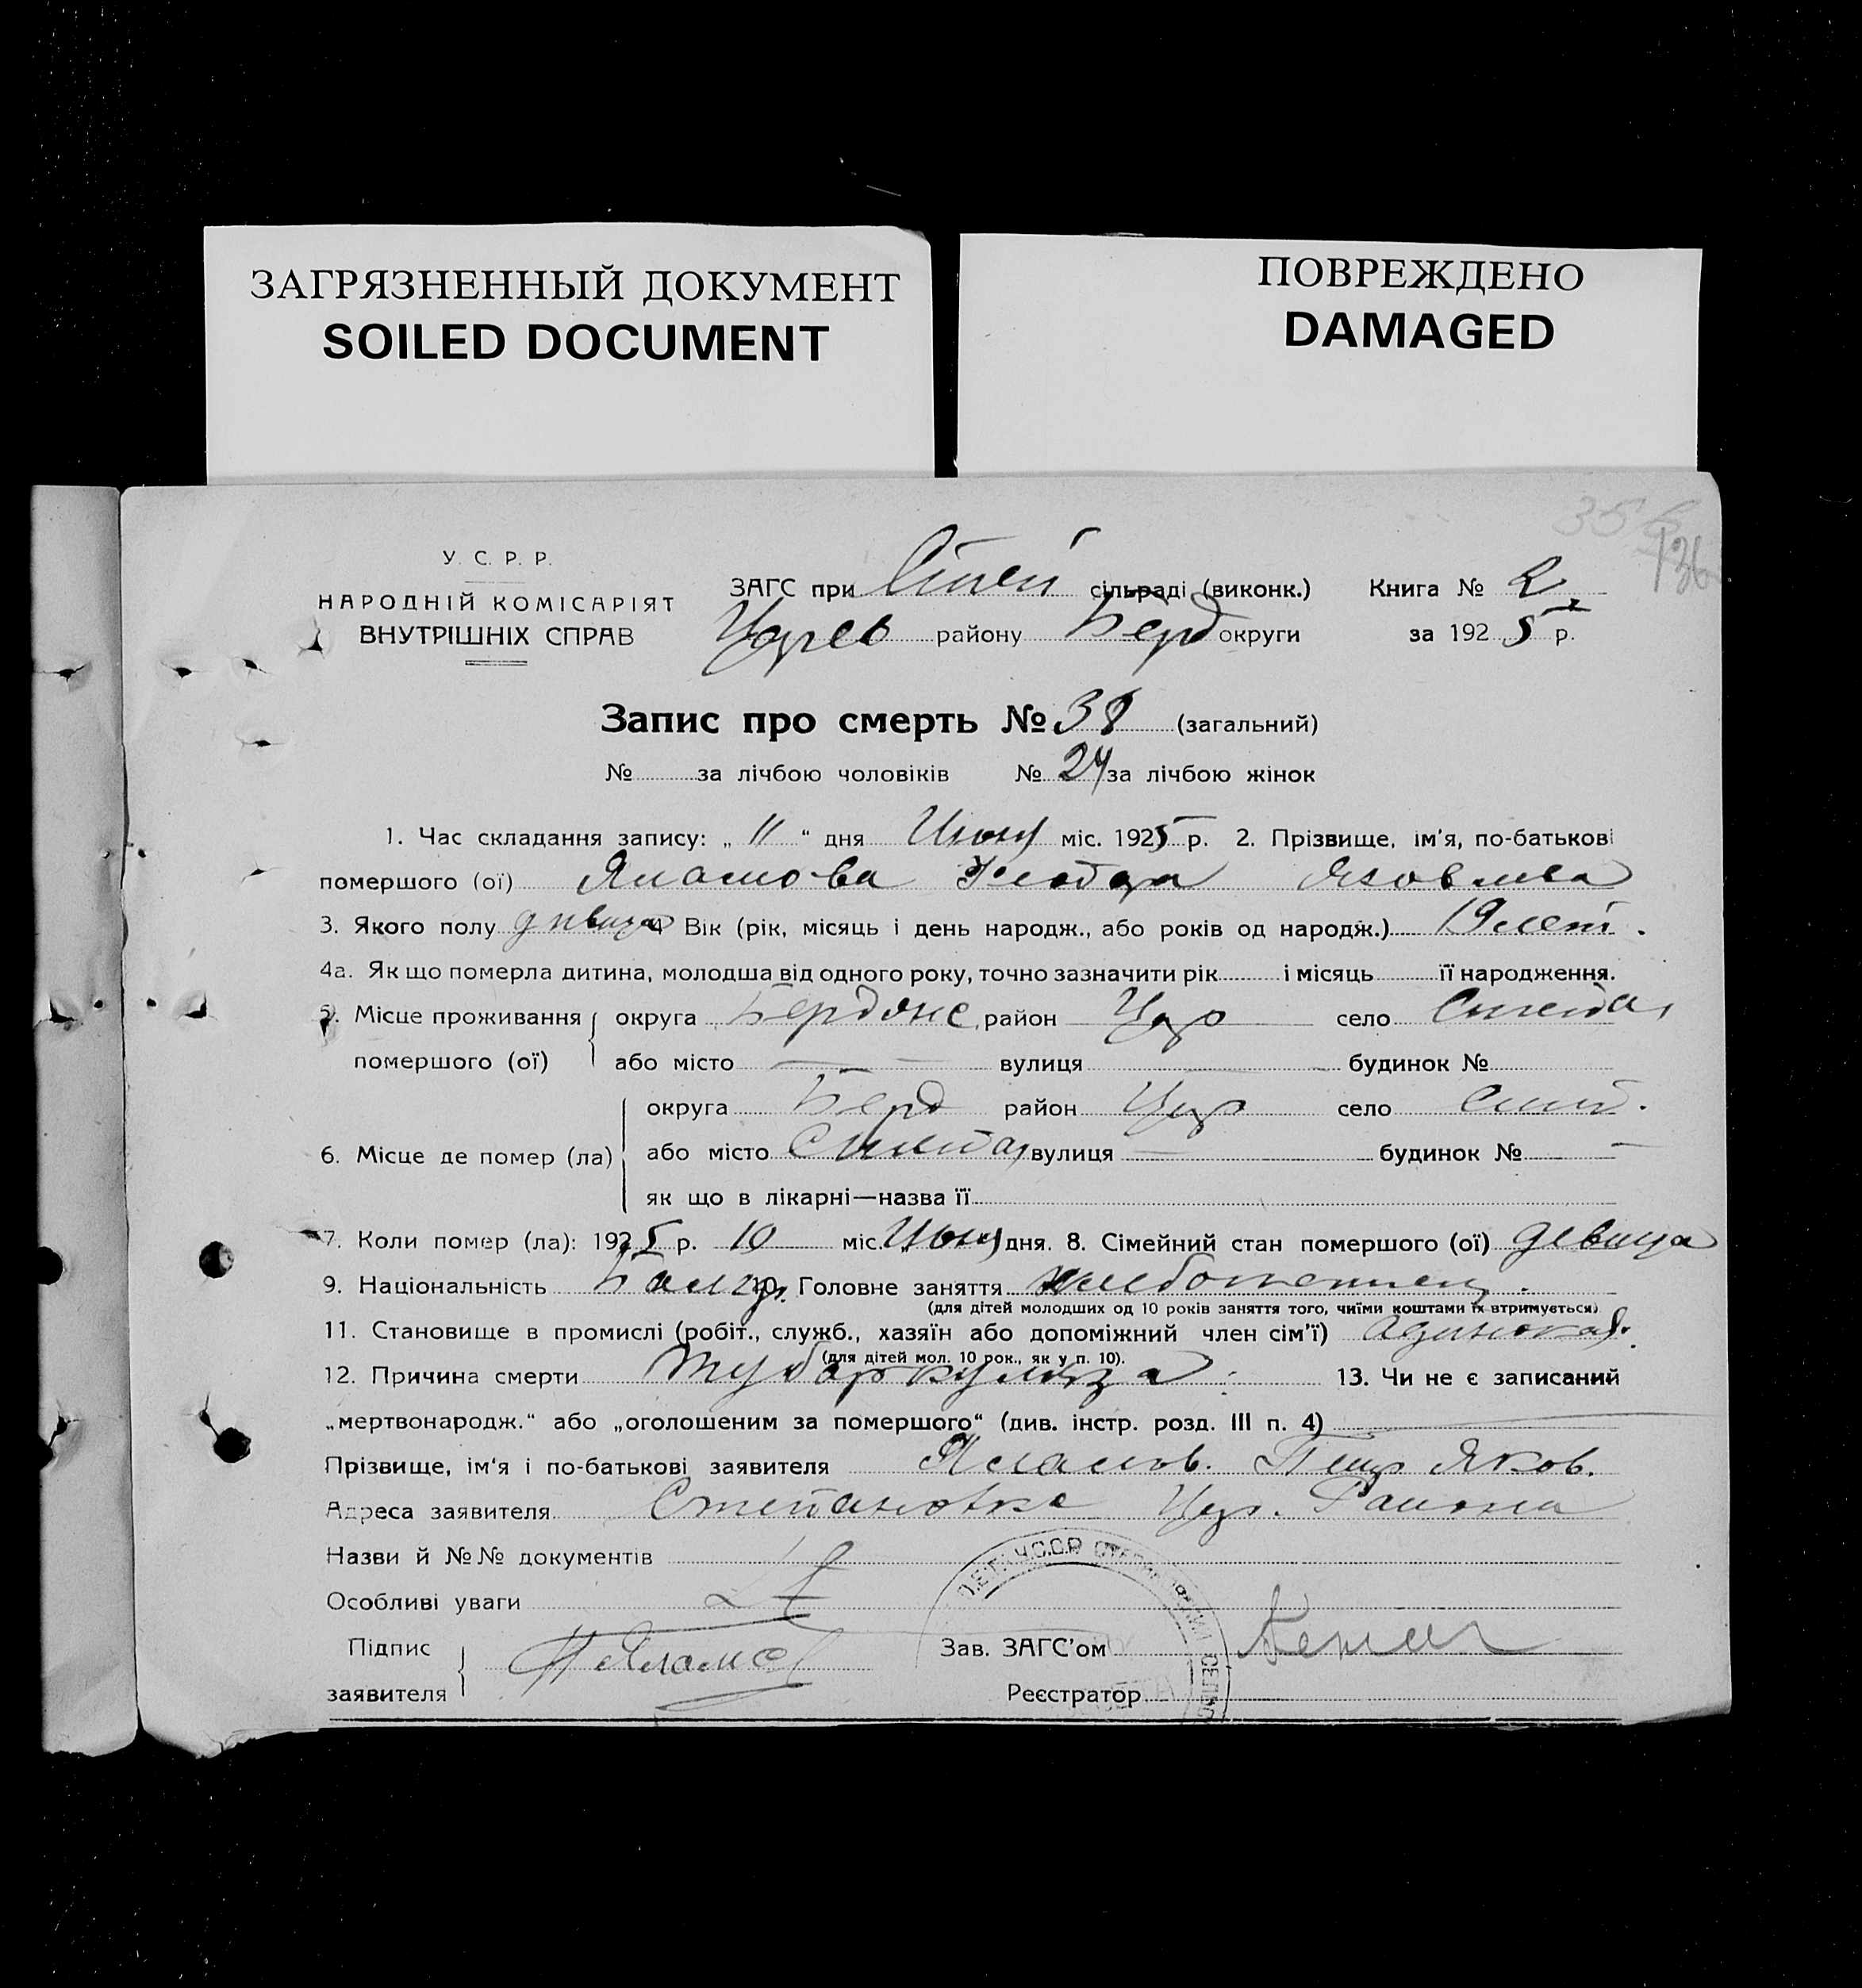 ЗАГРЯЗНЕННЫЙ ДОКУМЕНТ
SOILED DOCUMENT
ПОВРЕЖДЕНО
DAMAGED
136
У. С. Р. Р.
НАРОДНІЙ КОМІСАРІЯТ
ВНУТРІШНІХ СПРАВ
ЗАГС при Степ сільраді (виконк.) Книга № 2
району Берд округи за 1925 р.
Запис про смерть № 38 (загальний)
№ за лічбою чоловіків № 24 за лічбою жінок
1. Час складання запису: „ 11 “ дня Июня міс. 1925 р. 2. Прізвище, ім'я, по-батькові
помершого (ої) Яламова Яковлева
3. Якого полу девица 4 Вік (рік, місяць і день народж., або років од народж.) 19 лет.
4а. Як що померла дитина, молодша від одного року, точно зазначити рік і місяць її народження.
5. Місце проживання округа Бердянс район Цар село Степа
помершого (ої) або місто — — вулиця будинок №
округа Берд район Цар село Степ.
6. Місце де помер (ла) або місто вулиця — будинок № —
як що в лікарні—назва її
7. Коли помер (ла): 1925 р. 10 міс. Июня дня. 8. Сімейний стан помершого (ої) девица
9. Національність Болгар. 10. Головне заняття хлебопашец.
(для дітей молодших од 10 років заняття того, чиїми коштами їх втримується)
11. Становище в промислі (робіт., служб., хазяїн або допоміжний член сім'ї) Адинокая.
(для дітей мол. 10 рок., як у п. 10).
12. Причина смерти Тубаркулоза 13. Чи не є записаний
„мертвонародж.“ або „оголошеним за помершого“ (див. інстр. розд. III п. 4)
Прізвище, ім'я і по-батькові заявителя Яламов. Петр Яков.
Адреса заявителя Степановка Цар. Района
Назви й №№ документів
Особливі уваги
Підпис
заявителя П Яламов
Зав. ЗАГС'ом
Реєстратор